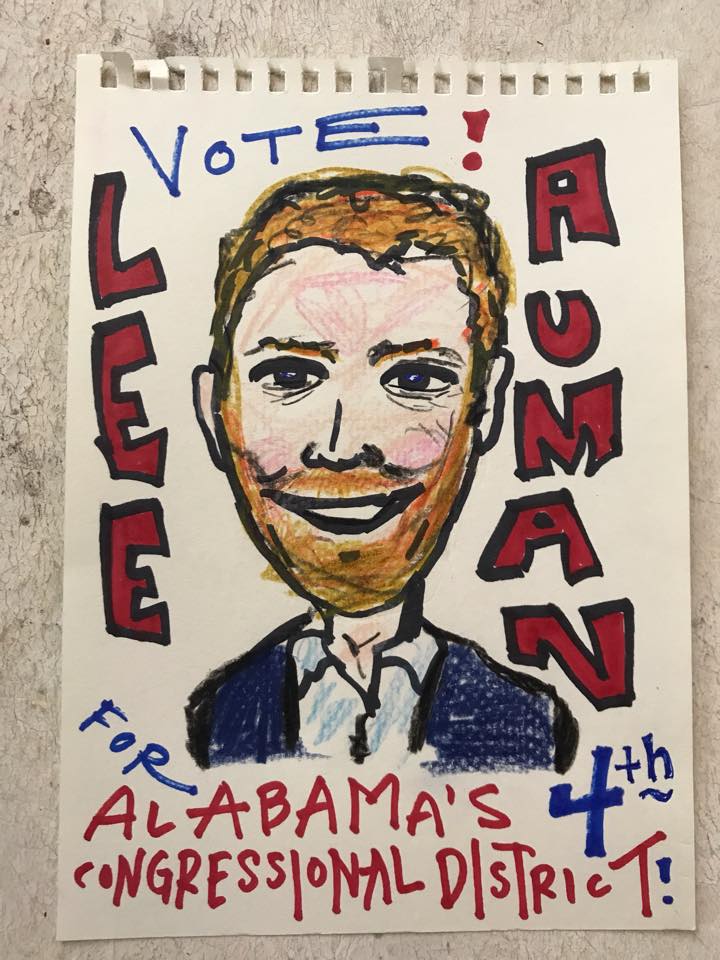 VOTE!
LEE
AUMAN
FOR
ALABAMA'S 4th
CONGRESSIONAL DISTRICT!